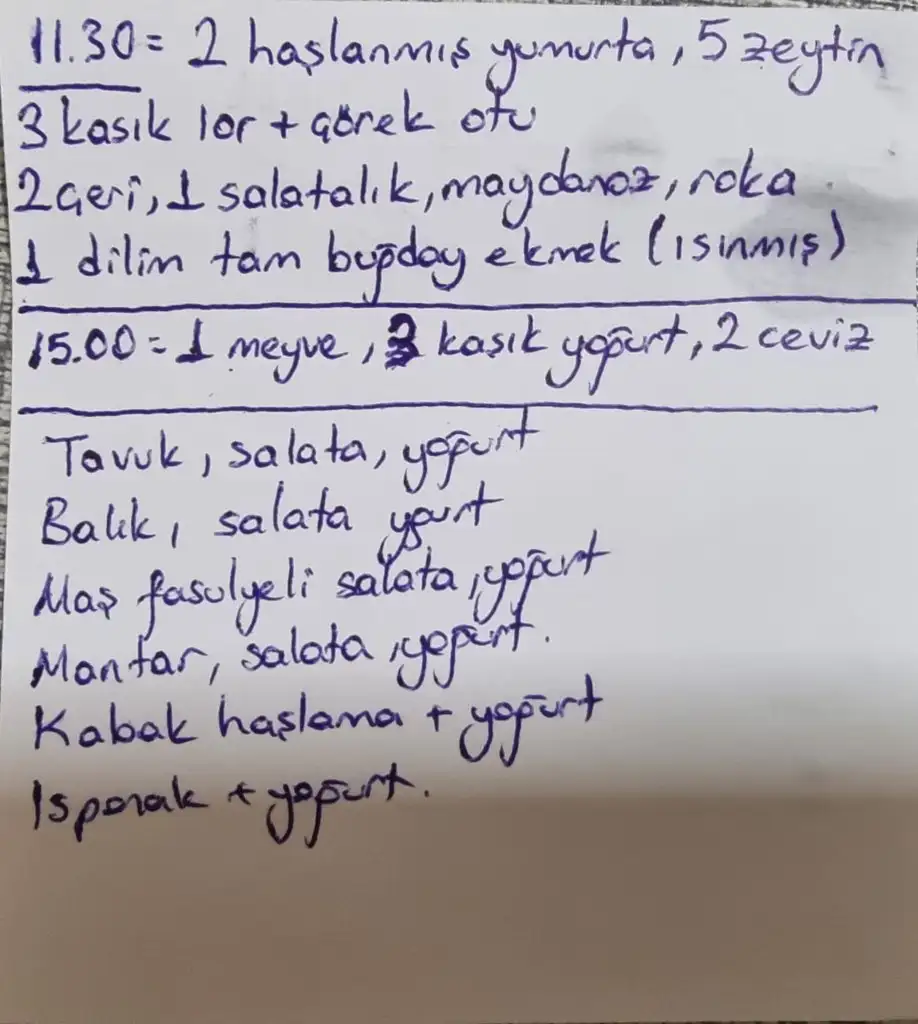 11.30 = 2 haşlanmış yumurta, 5 zeytin
3 kasık lor + çörek otu
2 çeri, 1 salatalık, maydanoz, roka
1 dilim tam buğday ekmek (ısınmış)
15.00 = 1 meyve, 3 kasık yoğurt, 2 ceviz
Tavuk, salata, yoğurt
Balık, salata yourt
Maş fasulyeli salata, yoğurt
Mantar, salata, yoğurt.
Kabak haşlama + yoğurt
Ispanak + yoğurt.